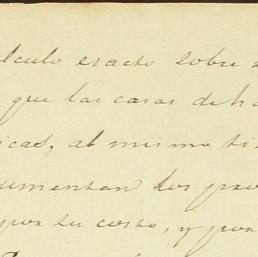 álculo esacto sobre
que las casas de ha
icas, al mismo ti
umentan los prov
por tu costo, y por